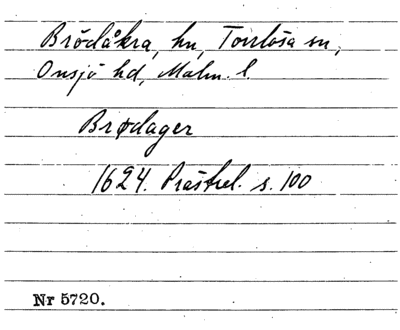 Brödåkra, hn, Torrlösa sn,
Onsjö hd, Malm. l.
Brødager
1624. Prästrel. s. 100
Nr 5720.